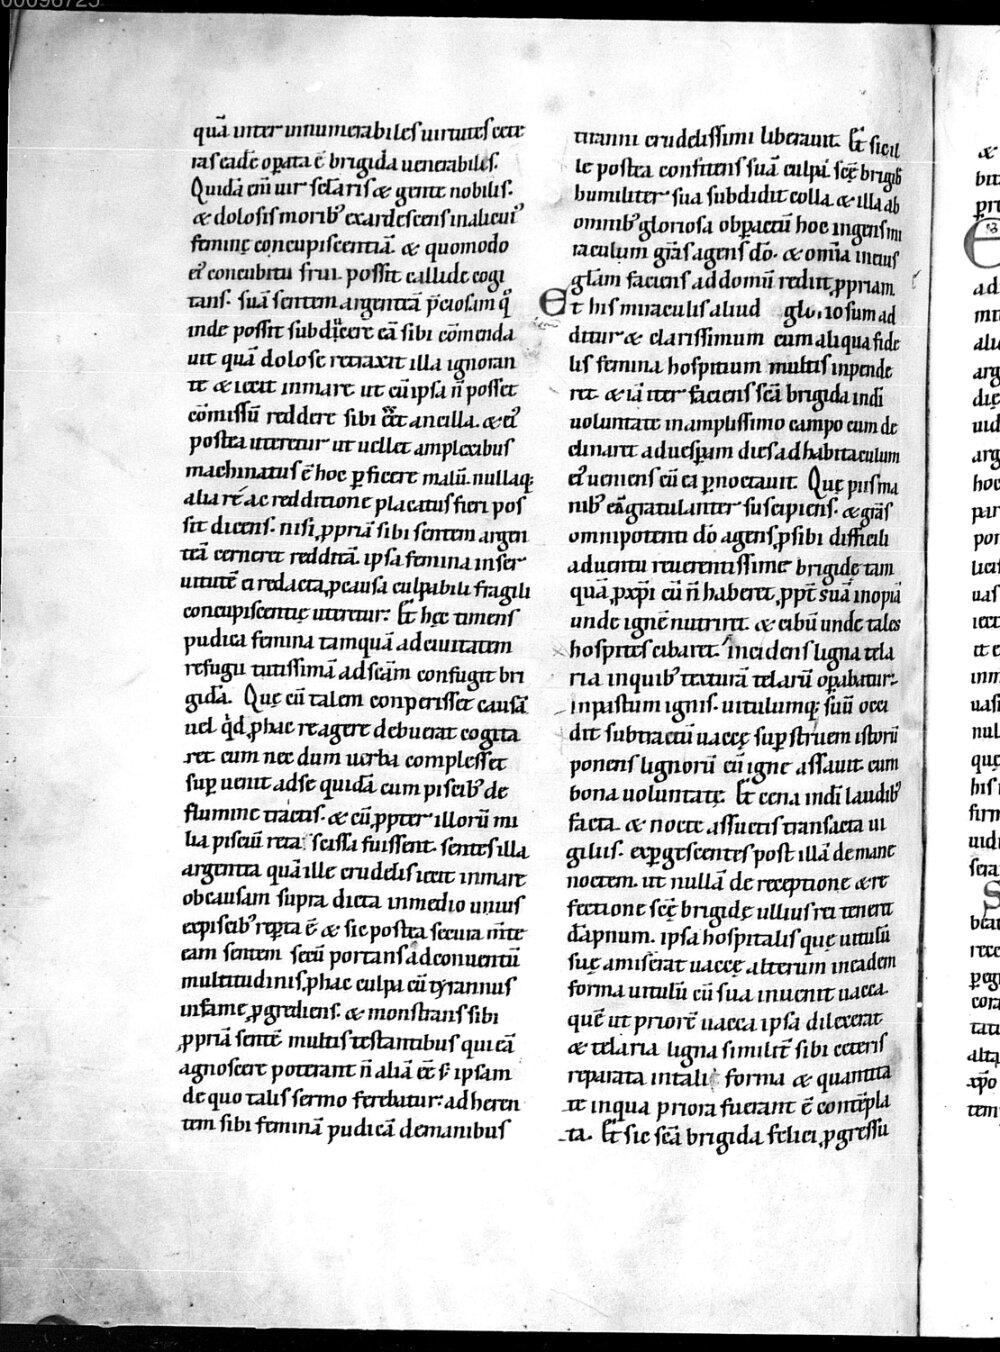 00098725
quā inter innumerabiles uirtutes cete
ras eadē oꝑata ē brigida uenerabiles.
Quidā eni uir scłaris & gente nobilis.
& dolosis morib; exardescens in alicui᾽
feminę concupiscentiā. & quomodo
ei᾽ concubitu frui possit callide cogi
tans. suā sentem argenteā p̄ciosam q̄
inde possit subdicere eā sibi cōmenda
uit quā dolose retraxit illa ignoran
te & iecit in mare ut cū ipsa n̄ posset
cōmissū reddere sibi eēt ancilla. & ei᾽
postea uteretur ut uellet amplexibus
machinatus ē hoc ꝑficere malū. nullaq;
alia re ac redditione placatus fieri pos
sit dicens. nisi ꝓpriā sibi sentem argen
teā cerneret redditā. ipsa femina in ser
uitutē ei redacta ꝓ causa culpabili fragili
concupiscentię uteretur. Et hęc timens
pudica femina tamquā ad ciuitatem
refugii tutissimā ad scām confugit bri
gidā. Quę cū talem conperisset causā
uel q̇d ꝓ hac re agere debuerat cogita
ret. cum nec dum uerba complesset
suꝑuenit ad se quidā cum piscib; de
flumine tractis. & cū ꝓpter illorū mi
lia pisciū reta scissa fuissent. sentes illa
argentea quā ille crudelis iecit in mare
ob causam supra dicta in medio unius
ex piscib; reꝑta ē & sic postea secura m̄te
eam sentem secū portans ad conuentū
multitudinis ꝓ hac culpa cū tyrannus
infame ꝓgrediens. & monstrans sibi
ꝓpriā sentē multis testantibus qui eā
agnoscere poterant n̄ aliā eē s; ipsam
de quo talis sermo ferebatur: adheren
tem sibi feminā pudicā de manibus
tiranni crudelissimi liberauit. Et sic il
le postea confitens suā culpā scę brigidę
humiliter sua subdidit colla. & illa ab
omnib; gloriosa ob ꝑactū hoc ingens mi
raculum grās agens dō. & omīa in eius
głam faciens ad domū rediit ꝓpriam.
Et his miraculis aliud gloriosum ad
ditur & clarissimum cum aliqua fide
lis femina hospitium multis inpende
ret. & iā iter faciens scā brigida indi
uoluntate in amplissimo campo cum de
clinaret ad uesꝑam dies ad habitaculum
ei᾽ ueniens cū ea ꝑnoctauit. Quę piis ma
nib; eā gratulanter suscipiens. & grās
omnipotenti dō agens ꝓ sibi difficili
aduentu reuerentissime brigidę tam
quā ꝓ xp̄i cū n̄ haberet ꝓpt̄ suā inopiā
unde ignē nutriret. & cibū unde tales
hospites cibaret. incidens ligna tela
ria in quib; texturā telarū oꝑabatur.
in pastum ignis. uitulumq; suū occi
dit subtractū uaccę suꝑ struem istorū
ponens lignorū cū igne assauit. cum
bona uoluntate. Et cena indi laudib;
facta. & nocte assuetis transacta ui
giliis. exꝑgescentes post illā de mane
noctem. ut nullā de receptione & re
fectione scę brigidę ullius rei teneret
dāpnum. ipsa hospitalis quę uitulū
suę amiserat uaccę alterum in eadem
forma uitulū cū sua inuenit uacca.
quē ut priorē uacca ipsa dilexerat
& telaria ligna similit̄ sibi ceteris
reparata in tali forma & quantita
te in qua priora fuerant ē contēpla
ta. Et sic scā brigida felici ꝓgressu